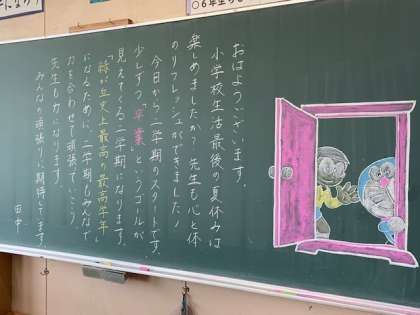 おはようございます。
小学校生活最後の夏休みは
楽しめましたか？先生も心と体
のリフレッシュができました！
今日から二学期のスタートです。
少しずつ「卒業」というゴールが
見えてくる二学期になります。
「緑が丘史上最高の最高学年」
になるために、二学期もみんなで
力を合わせて頑張っていこう
先生も力になります。
みんなの頑張りに期待してます。
田中